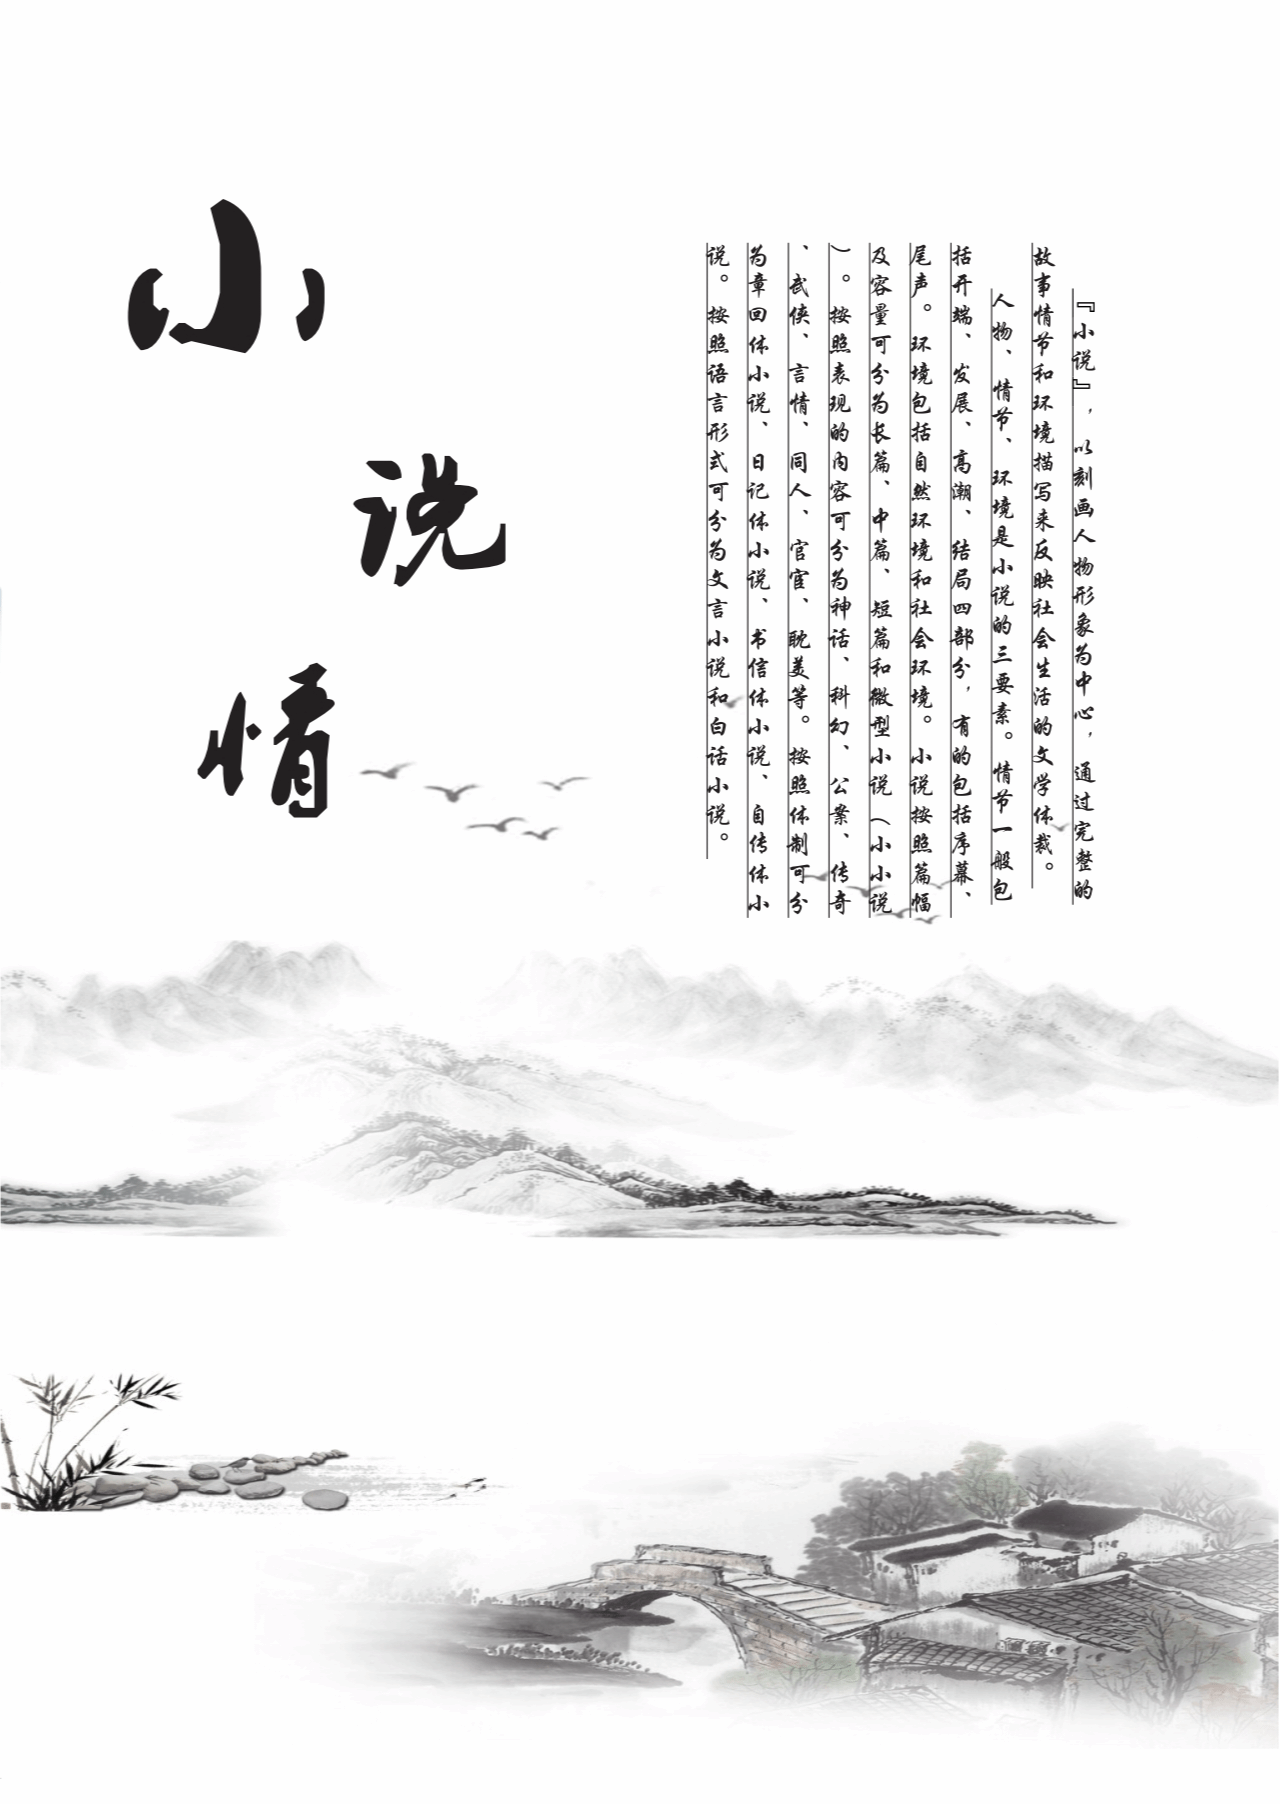 小
说
情
『小说』，以刻画人物形象为中心，通过完整的
故事情节和环境描写来反映社会生活的文学体裁。
人物、情节、环境是小说的三要素。情节一般包
括开端、发展、高潮、结局四部分，有的包括序幕、
尾声。环境包括自然环境和社会环境。小说按照篇幅
及容量可分为长篇、中篇、短篇和微型小说（小小说
）。按照表现的内容可分为神话、科幻、公案、传奇
、武侠、言情、同人、官宦、耽美等。按照体制可分
为章回体小说、日记体小说、书信体小说、自传体小
说。按照语言形式可分为文言小说和白话小说。